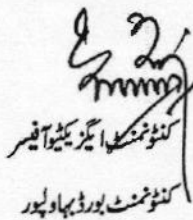 کنٹونمنٹ ایگزیکٹیو آفیسر
کنٹونمنٹ بورڈ بہاولپور